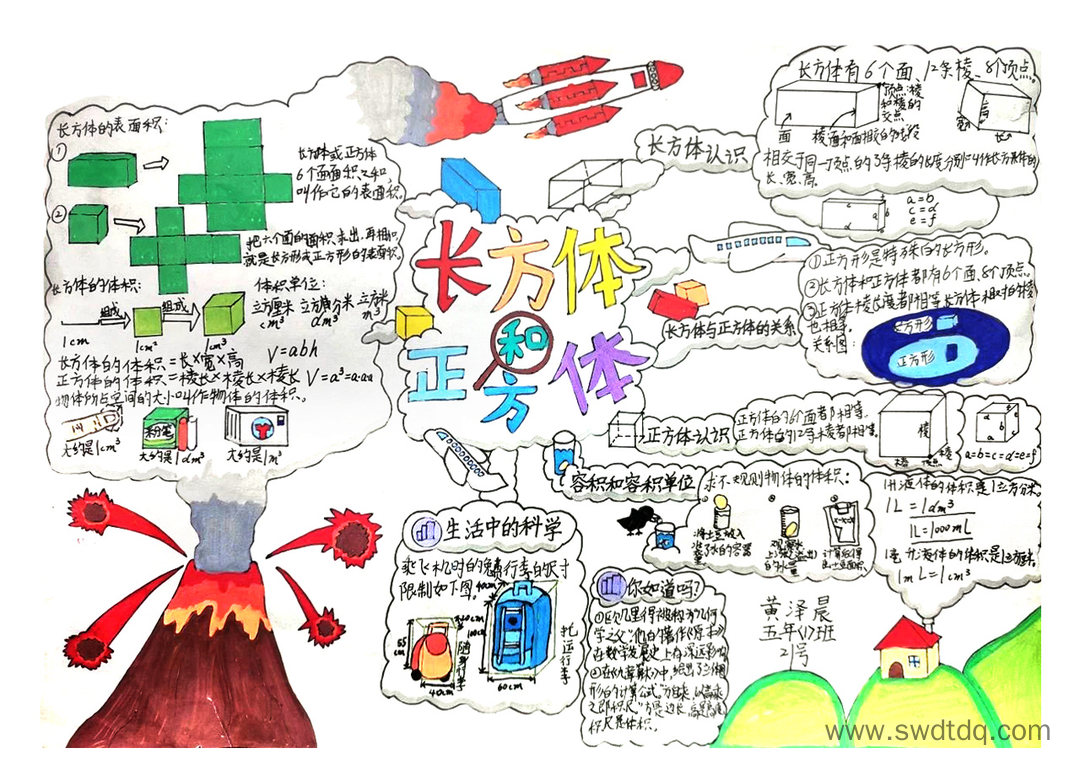 长方体的表面积:
①
②
长方体或正方体
6个面面积之和
叫作它的表面积。
把六个面的面积求出,再相加,
就是长方形或正方形的表面积。
长方体的体积:
组成
组成
1cm
1cm²
1cm³
体积单位:
立方厘米 立方分米 立方米
cm³ dm³ m³
长方体的体积=长×宽×高 V=abh
正方体的体积=棱长×棱长×棱长 V=a³=a·a·a
物体所占空间的大小叫作物体的体积。
大约是1cm³
粉笔
大约是1dm³
大约是1m³
长方体
和
正方体
长方体认识
长方体有6个面、12条棱、8个顶点。
顶点:棱
和棱的
交点
面
棱
高
宽
长
相交于同一顶点的3条棱的长度分别叫作长方体的
长、宽、高。
a=b
c=d
e=f
长方体与正方体的关系
①正方形是特殊的长方形。
②长方体和正方体都有6个面、8个顶点。
③正方体棱长度都相等,长方体相对的棱
也相等。
关系图:
长方形
正方形
正方体认识
正方体的6个面都相等。
正方体的12条棱都相等。
棱
顶点
a
a
b
a=b=c=d=e=f
容积和容积单位
求不规则物体的体积:
将土豆放入
1升液体的体积是1立方分米。
1L=1dm³
1L=1000mL
1毫升液体的体积是1立方厘米。
1mL=1cm³
生活中的科学
乘飞机时的随行李的尺寸
限制如下图。
55
cm
40cm
随身行李
40cm
100cm
60cm
托运行李
你知道吗?
①欧几里得被称为几何
学之父,他的著作《原本》
在数学发展史上有深远影响
黄泽晨
五年(1)班
21号
www.swdtdq.com